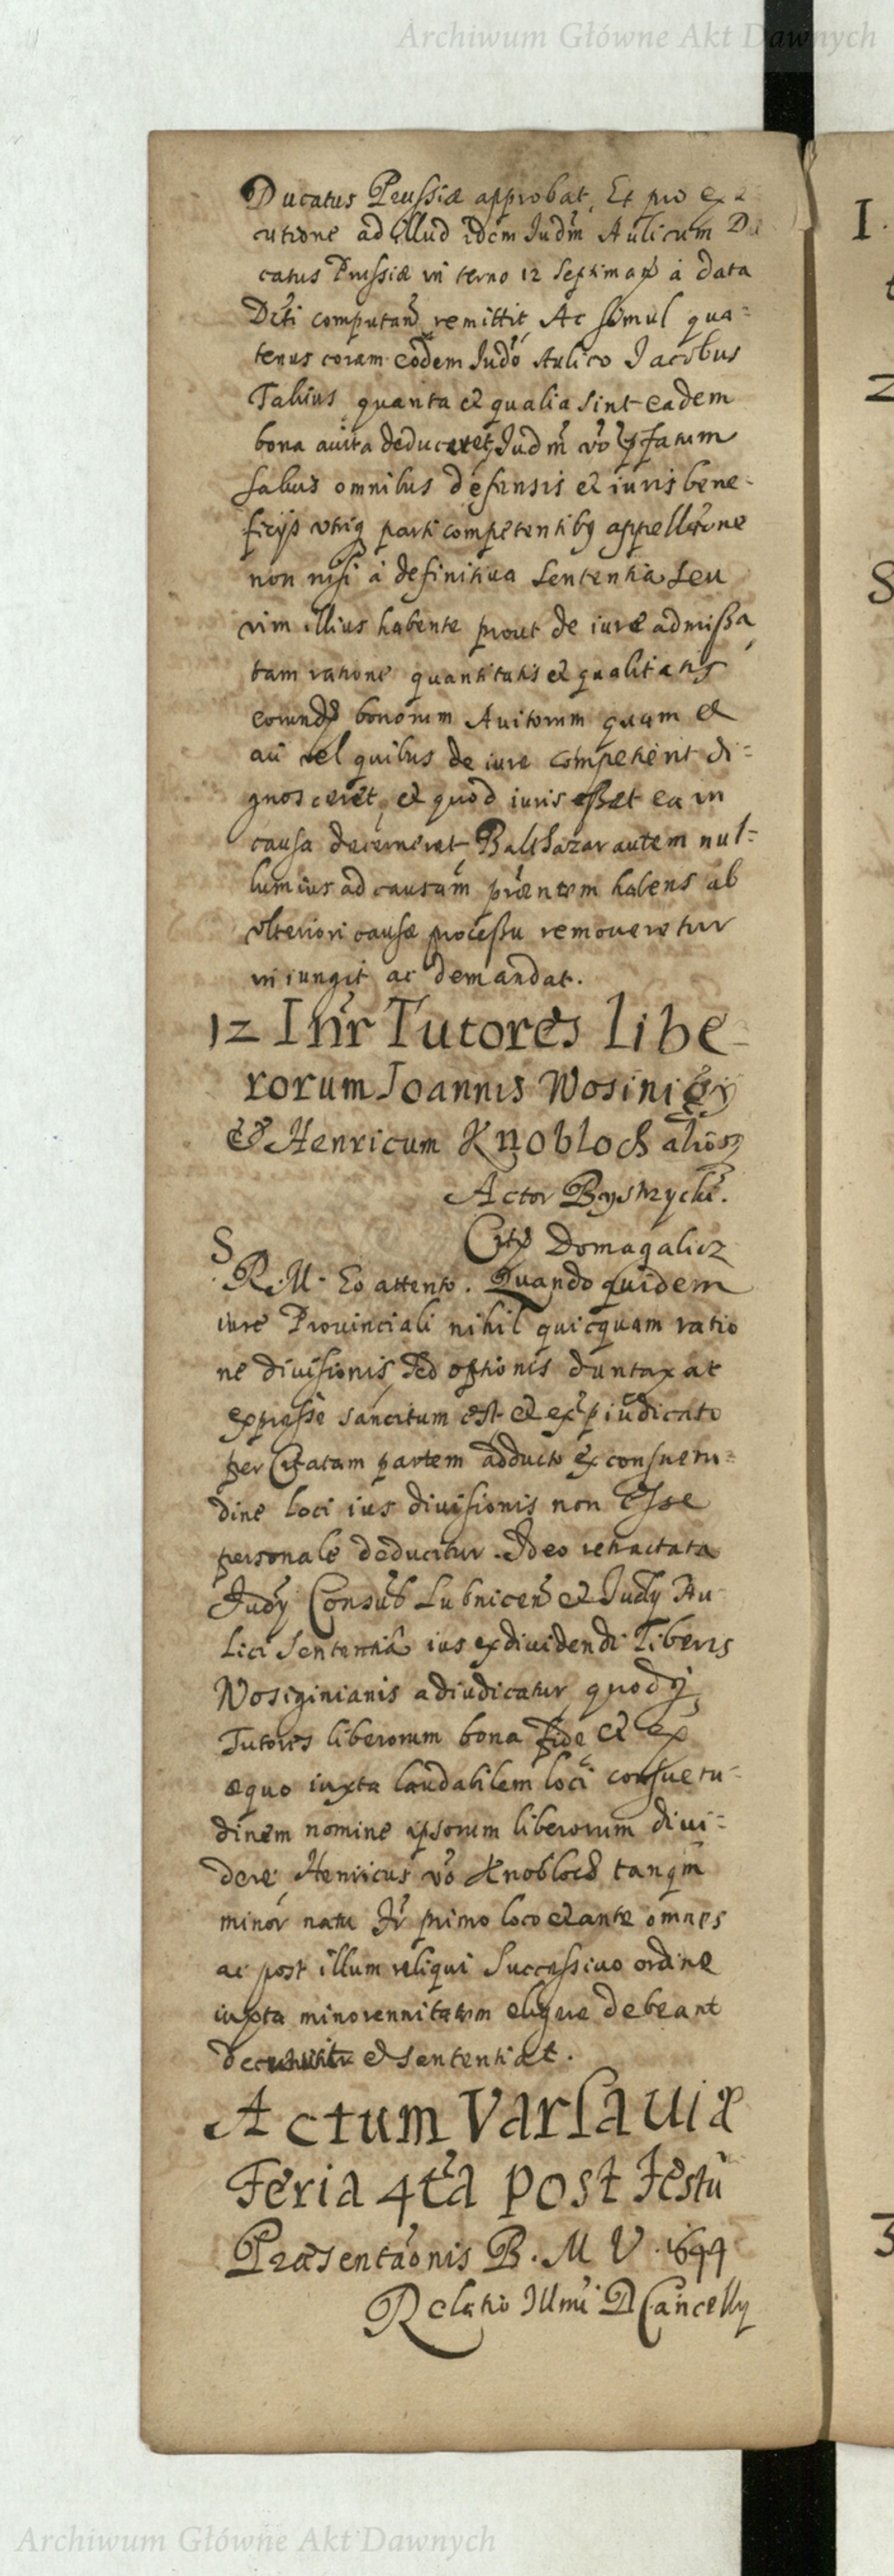 Archiwum Główne Akt Dawnych
Ducatus Prussiæ approbat, Et pro ex
cutione ad illud idem Iudm̃ Aulicum Du
catus Prussiæ in terno 12 Septiman à data
Dcti computan remittit, Ac simul qua=
tenus coram eodem Iudo Aulico Iacobus
Tabius quanta et qualia sint eadem
bona auita deduceret, Iudm̃ vo pfatum
saluis omnibus defensis et iuris bene-
ficijs vtriq parti competentibq appellaone
non nisi à definitiua sententia seu
vim illius habente prout de iure admissa,
tam ratione quantitatis et qualitatis
eorund bonorum Auitorum quam et
aũ vel quibus de iure competerent di=
gnosceret, et quod iuris esset ea in
causa decerneret, Balthazar autem nul=
lum ius ad causam præntem habens ab
vlteriori causæ processu remoueretur
iniungit ac demandat.
12 Inr Tutores libe-
rorum Ioannis Wosini
& Henricum Knobloch alios
Actor Bystrzycki.
Citt Domagalicz
S
R. M. Eo attento. Quandoquidem
iure Prouinciali nihil quicquam ratio
ne diuisionis, sed optionis duntaxat
expresse sancitum est et ex piudicato
per Citatam partem adducto ex consuetu=
dine loci ius diuisionis non esse
personale deducitur. Ideo retractata
Iudy Consub Lubnicen et Iudy Au
lici sententia ius exdiuidendi liberis
Wosiginianis adiudicatur, quod
Tutores liberorum bona fide et ex
æquo iuxta laudabilem loci consuetu=
dinem nomine ipsorum liberorum diui=
dere, Henricus vo Knobloch tanqm̃
minor natu Fr primo loco et ante omnes
ac post illum reliqui successiuo ordine
iuxta minorennitatem eligere debeant
et sententiat.
Actum Varsauiæ
Feria 4ta post Festũ
Præsentaonis B. M V. 1644
Relatio Illmi D Cancelly
I.
2
S
3
Archiwum Główne Akt Dawnych